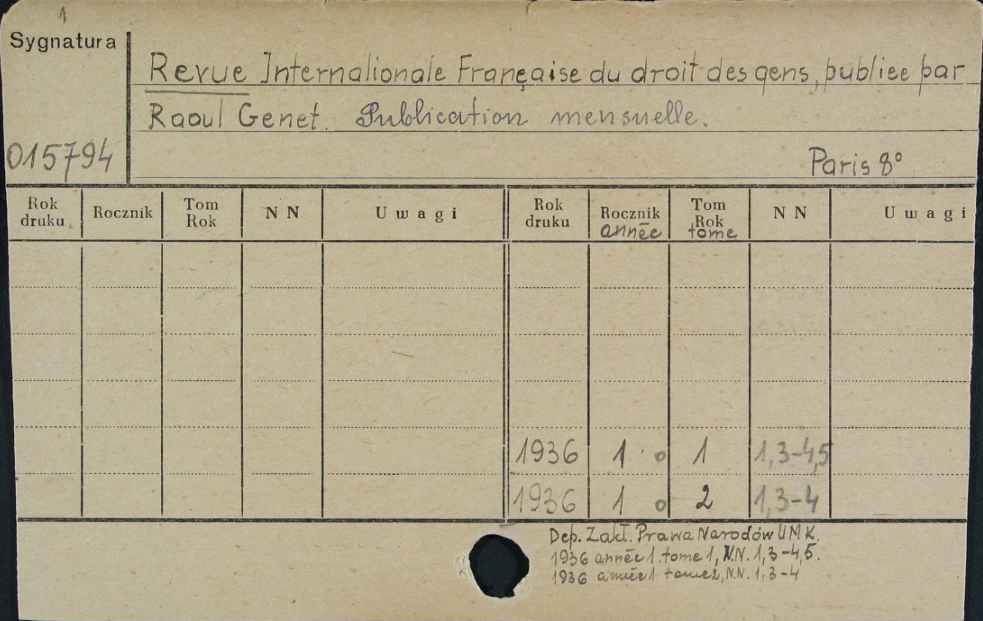 1
Sygnatura
Revue Internationale Française du droit des gens, publiee par
Raoul Genet. Publication mensuelle.
015794
Paris 8°
Rok druku Rocznik Tom Rok NN Uwagi Rok druku Rocznik année Tom Rok tome NN Uwagi
1936 1 o 1 1,3-4,5
1936 1 o 2 1,3-4
Dep. Zakł. Prawa Narodów UMK.
1936 année 1. tome 1, N.N. 1,3-4,5.
1936 année 1 tome 2, N.N. 1,3-4